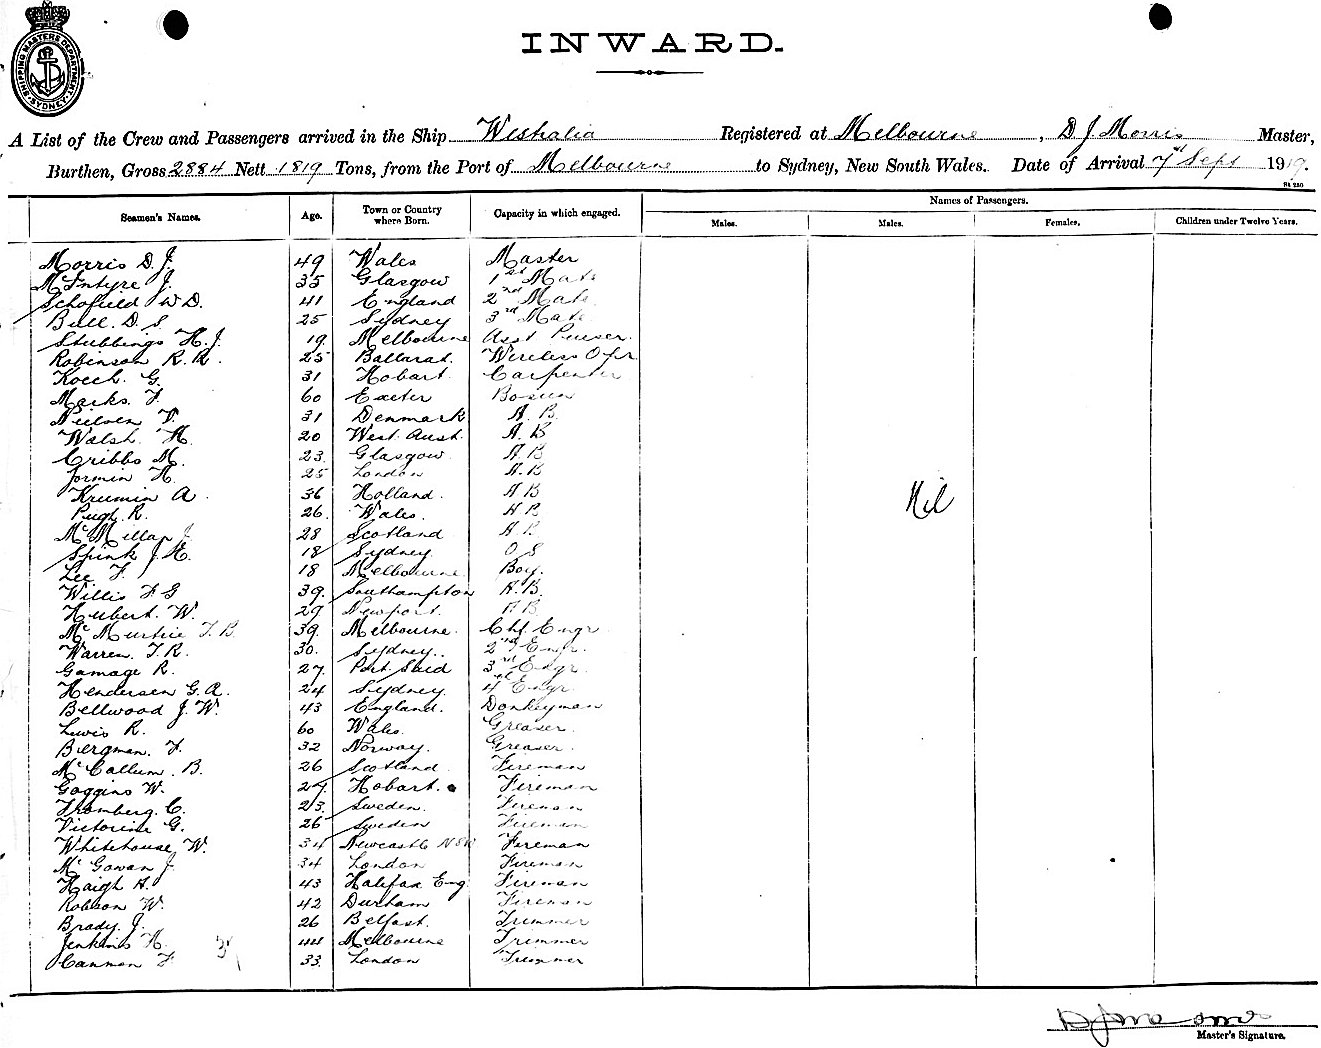 SHIPPING MASTERS DEPARTMENT SYDNEY
INWARD.
A List of the Crew and Passengers arrived in the Ship Westralia Registered at Melbourne, D J Morris Master,
Burthen, Gross 2884 Nett 1819 Tons, from the Port of Melbourne to Sydney, New South Wales. Date of Arrival 7 Sept 1919.
Names of Passengers.
Seamen's Names. Age. Town or Country where Born. Capacity in which engaged. Males. Males. Females. Children under Twelve Years.
Morris D. J. 49 Wales Master
McIntyre J. 35 Glasgow 1st Mate
Schofield W D. 41 England 2nd Mate
Bull. D. S. 25 Sydney 3rd Mate
Stubbings H. J. 19 Melbourne Asst Purser.
Robinson R. R. 25 Ballarat. Wireless Opr
Koech. G. 31 Hobart. Carpenter
Marks. F. 60 Exeter Bosun
Neilsen V. 31 Denmark A. B.
Walsh. H. 20 West. Aust. A. B
Cribbs M. 23. Glasgow. A. B
Jormin H. 25 London A. B
Krumin A. 36 Holland. A B
Nil
Pugh. R. 26. Wales. A B
McMillan J. 28 Scotland A. B.
Spink J. H. 18 Sydney. O S
Lee F. 18 Melbourne. Boy.
Willis F G 39. Southampton A. B.
Hubert. W. 29 Newport. A B
McMurtrie T. B. 39. Melbourne. Chf. Engr.
Warren. T. R. 30. Sydney. 2nd Engr.
Gamage R. 27. Port Said 3rd Engr.
Henderson G. A. 24 Sydney. 4 Engr.
Bellwood J. W. 43 England. Donkeyman
Lewis R. 60 Wales. Greaser.
Bergman. F. 32 Norway. Greaser.
McCallum. B. 26 Scotland. Fireman
Goggins W. 27. Hobart. Fireman
Fromberg. C. 23. Sweden. Fireman
Victorine G. 26 Sweden Fireman
Whitehouse W. 34 Newcastle NSW Fireman
McGowan J. 34 London Fireman
Haigh A. 43 Halifax Eng. Fireman
Robson W. 42 Durham Fireman
Brady. J. 26 Belfast. Trimmer
Jenkins H. 44 Melbourne Trimmer
Cannon F 33. London Trimmer
Master's Signature.